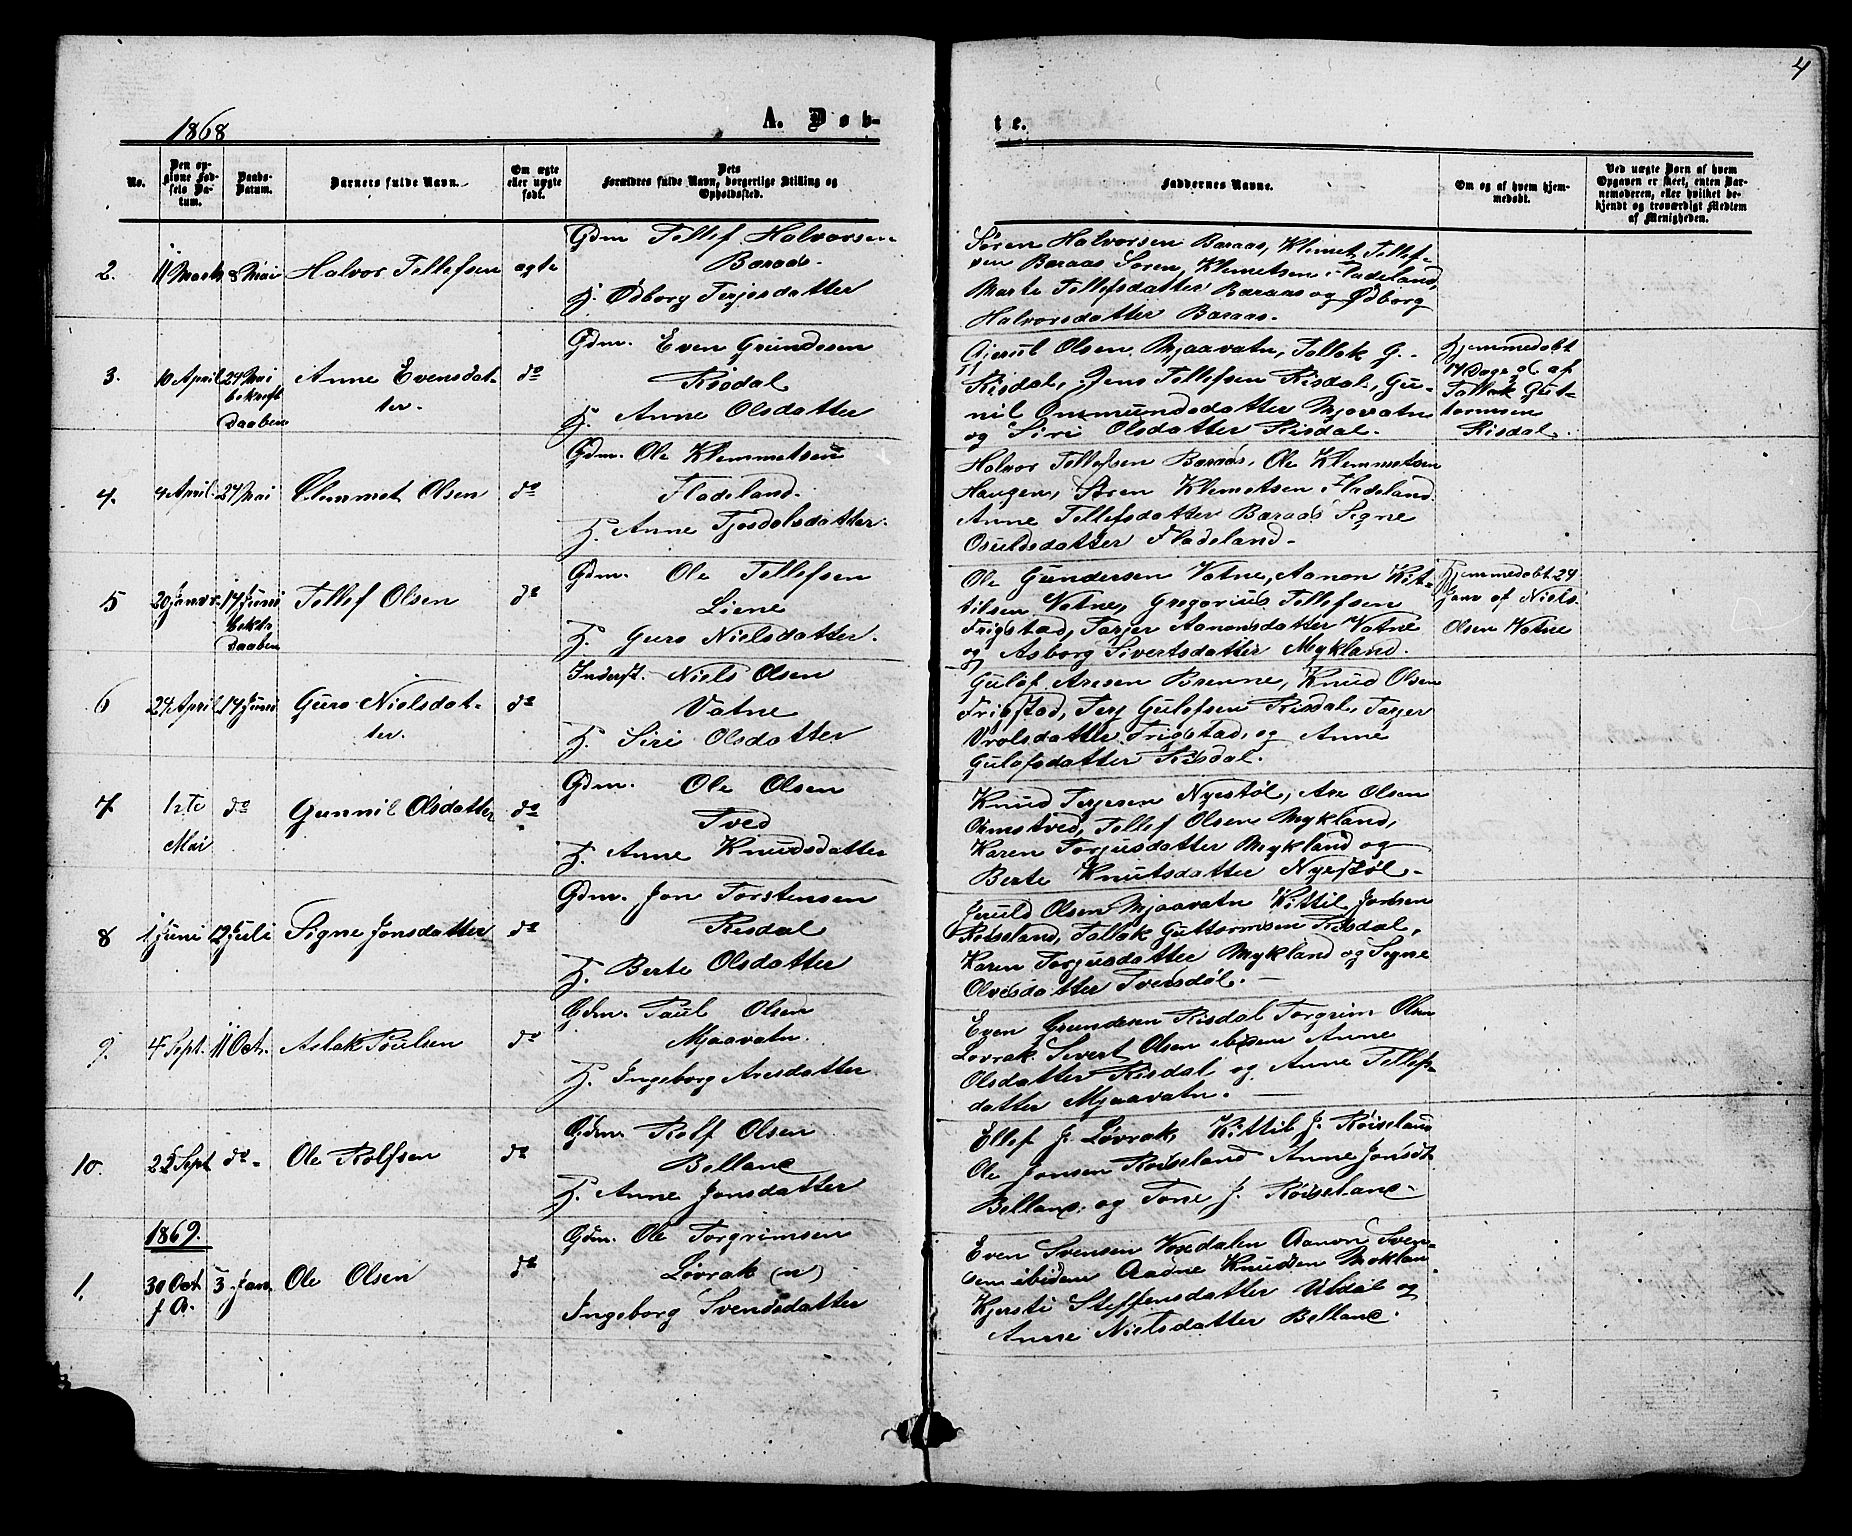 4
1868
A. Døb-
te.
No.
Den op-
givne Fød-
sels Da-
tum.
Daabs-
Datum.
Barnets fulde Navn.
Om ægte
eller uægte
født.
Dets
Forældres fulde Navn, borgerlige Stilling og
Opholdssted.
Faddernes Navne.
Om og af hvem hjem-
medøbt.
Ved uægte Børn af hvem
Opgaven er skeet, enten Bar-
nemoderen, eller hvilket be-
kjendt og troværdigt Medlem
af Menigheden.
2. 11 Marts 8 Mai Halvor Tellefsen ægte
Gdm Tellef Halvorsen
Baraas.
H. Ødborg Terjesdatter
Søren Halvorsen Baraas, Klemet Tellef-
sen Baraas Søren Klemetsen Fladeland,
Marte Tellefsdatter Baraas og Ødborg
Halvorsdatter Baraas.
3. 10 April 24 Mai
bekræft
Daaben
Anne Evensdat-
ter. do
Gdm. Even Gundesen
Risdal
H. Anne Olsdatter
Gjerul Olsen Mjaavatn, Tallak G.
Risdal, Jens Tellefsen Risdal, Gu-
nil Omundsdatter Mjavatn
og Siri Olsdatter Risdal.
Hjemmedøbt
14 Dage gl. af
Tallak Gut-
tormsen
Risdal.
4. 4 April. 24 Mai Clemmet Olsen do
Gdm. Ole Klemmetsen
Fladeland.
H. Anne Tjosdolsdatter.
Halvor Tellefsen Baraas, Ole Klemmetsen
Haugen, Søren Klemetsen Fladeland.
Anne Tellefsdatter Baraas Signe
Osuldsdatter Fladeland.
5 20 Janvr. 14 Juni
bekr.
Daaben
Tellef Olsen do
Gdm. Ole Tellefsen
Liene
H. Guro Nielsdatter.
Ole Gundersen Vatne, Aanon Kit-
tilsen Vatne, Gregorius Tellefsen
Frigstad, Tarjer Aanonsdatter Vatne
og Asborg Sivertsdatter Mykland.
Hjemmedøbt 24
Janv af Niels
Olsen Vatne
6 24 April 14 Juni Guro Nielsdat-
ter. do
Inderst. Niels Olsen
Vatne
H. Siri Olsdatter
Gulof Aresen Brenne, Knud Olsen
Frigstad, Terj Gulofsen Risdal, Tarjer
Vrolsdatter Frigstad, og Anne
Gulofsdatter Risdal.
7 1ste
Mai
do Gunnil Olsdatter do
Gdm. Ole Olsen
Tved
H. Anne Knudsdatter
Knud Terjesen Nyestøl, Are Olsen
Omstved, Tellef Olsen Mykland,
Karen Torjusdatter Mykland og
Berte Knutsdatter Nyestøl.
8 1 Juni 12 Juli Signe Jonsdatter do
Gdm. Jon Torstensen
Risdal
H. Berte Olsdatter
Jeruld Olsen Mjaavatn Kittil Jonsen
Røiseland, Tallak Guttormsen Risdal,
Karen Torjusdatter Mykland og Signe
Olvesdatter Tveisdøl.
9. 4 Sept. 11 Oct. Aslak Poulsen do
Gdm. Paul Olsen
Mjaavatn.
H. Ingeborg Aresdatter
Even Grundesen Risdal Torgrim Olsen
Lovrak Sivert Olsen ibidem Anne
Olsdatter Risdal og Anne Tellefs-
datter Mjaavatn.
10. 22 Sept do Ole Rolfsen do
Gdm. Rolf Olsen
Bellane
H. Anne Jonsdatter
Ellef J. Løvrak, Kittil J. Røiseland
Ole Jonsen Røiseland Anne Jonsdt
Bellane, og Tone J. Røiseland.
1869.
1. 30 Oct
f A.
3. Jan. Ole Olsen do
Gdm. Ole Torgrimsen
Løvrak (n)
Ingeborg Svendsdatter
Even Svensen Voxdalen Aanon Sven-
sen ibidem Aadne Knudsen Myklan
Kjersti Steffensdatter Uldal og
Anne Nielsdatter Bellane.